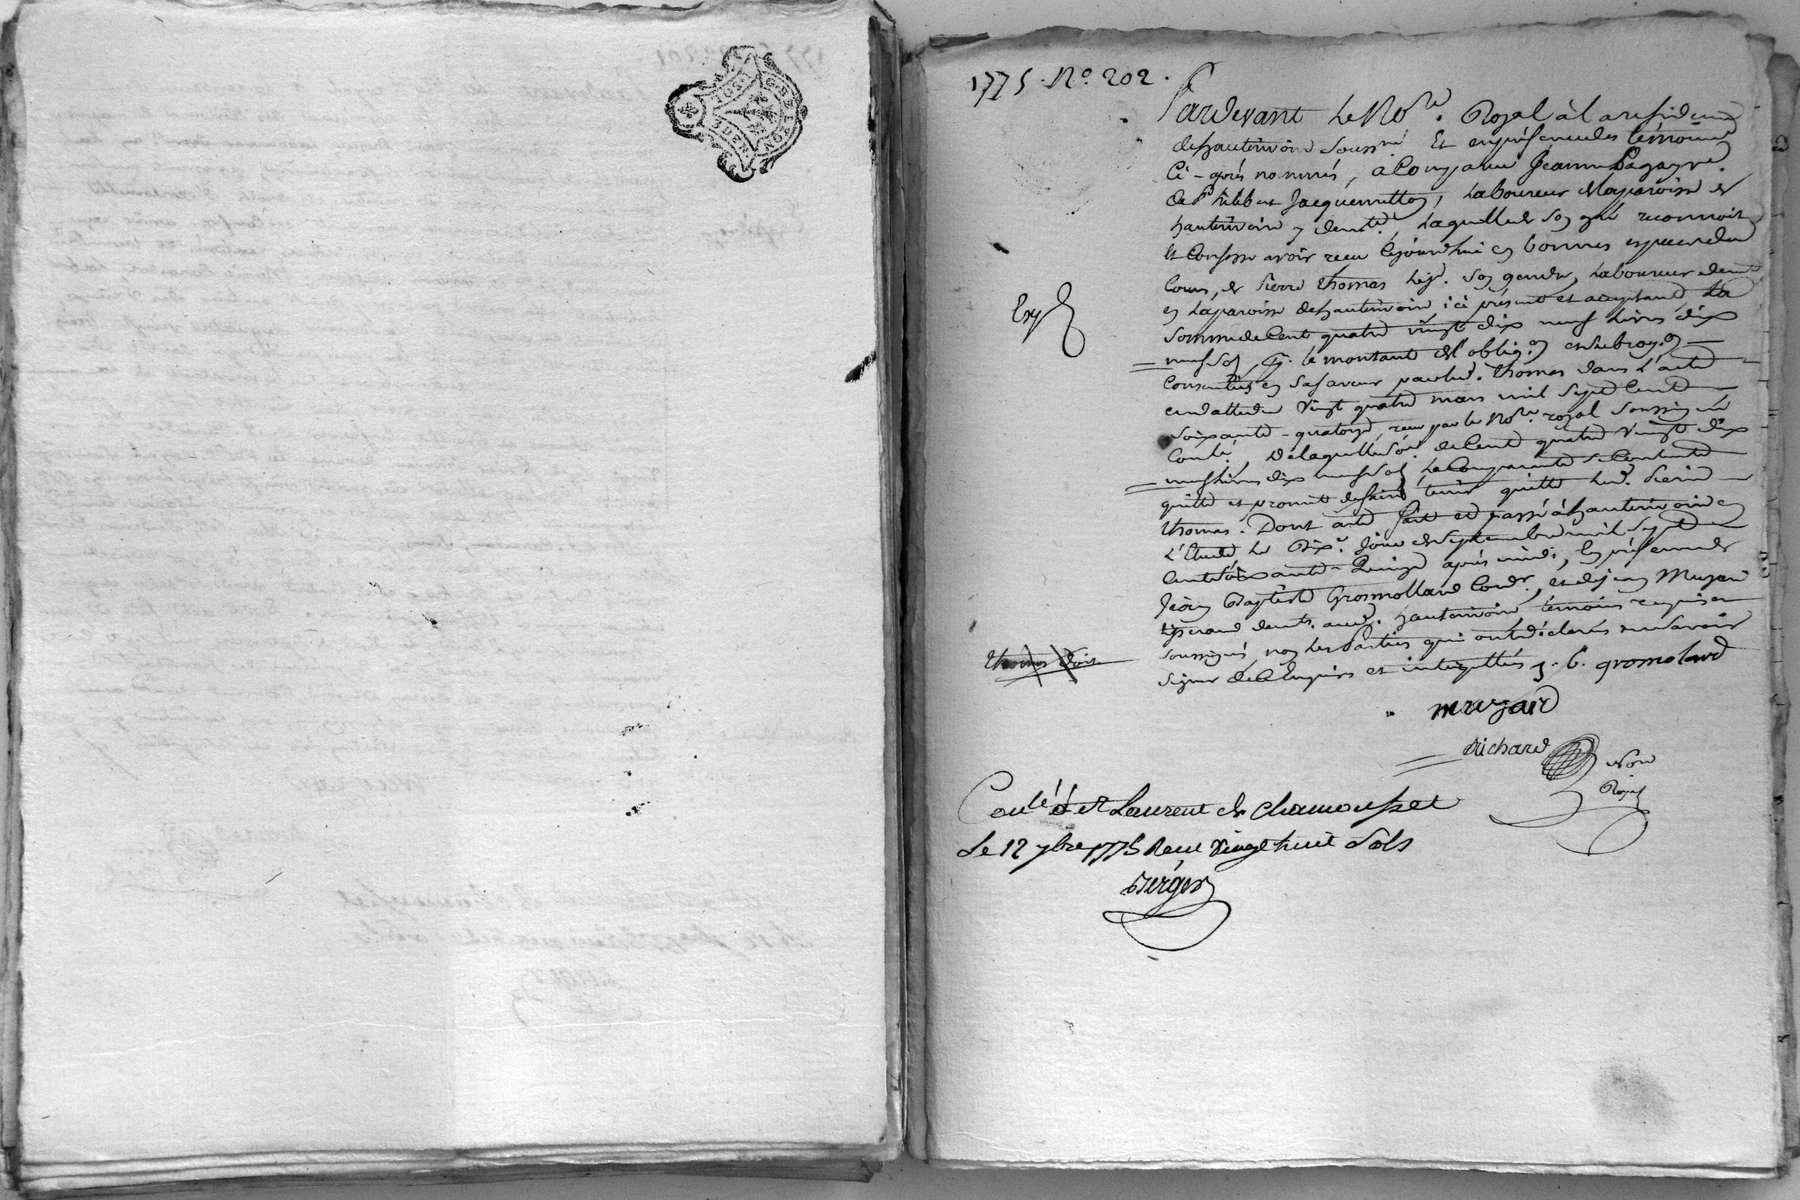 GEN. DE LYON
1775. No. 202.
Pardevant Le No.re Royal à la residence
de hauterivoire soussné Et en présence des témoins
Ci-après nommés, a Comparu Jeanne
de Philibert Jacquemetton, Laboureur de la paroisse de
hauterivoire y demt., Laquelle de son gré reconnoit
et Confesse avoir receu Cejourdhui en bonnes especes du
Cours, de Pierre thomas son gendre, Laboureur demt
en la paroisse de hauterivoire ici présent et acceptant La
somme de Cent quatre vingt dix neuf Livres dix
neuf sols, le montant de l'oblig.on en subrog.on
Consenties en sa faveur par led. thomas dans L'acte
en datte du vingt quatre mars mil Sept Cent
soixante-quatorze, receu par le No.re royal soussigné
Conlé, De laquelle so.e de Cent quatre vingt dix
neuf Livres dix neuf sols La Comparante se Contente
quitte et promet de faire tenir quitte Led. Pierre
thomas. Dont acte fait et passé à hauterivoire en
L'étude Le Dix.e jour de Septembre mil Sept
Cent soixante-Quinze après midi, En présence de
Jean Baptiste Gromollard et de jean Muzard
tisserand demts. aud. hauterivoire témoins requis
soussignés non Les Parties qui ont déclarés ne savoir
signer de Ce enquises et interpellées J. B. gromolard
Exp
thomas doit
muzard
Richard
Nore
Royal
Conlé à st Laurent de Chamousset
Le 12 7bre 1775 Receu vingt huit sols
Berger